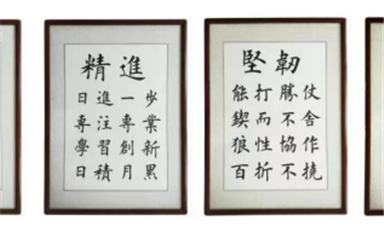 精進
日進一步
專注專業
學習創新
日積月累
堅韌
能打勝仗
鍥而不舍
狼性協作
百折不撓